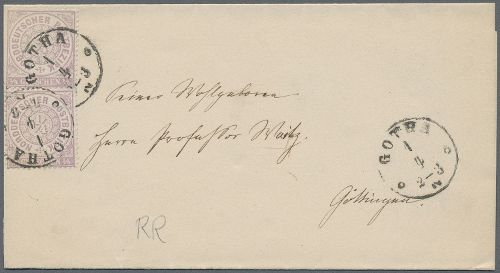 NORDDEUTSCHER POSTBEZIRK
GOTHA
1
4
2-3
N
NORDDEUTSCHER POSTBEZIRK
GOTHA
1
4
Seiner Wohlgeboren
Herrn Professor Waitz
Göttingen.
GOTHA
1
4
2-3
N
RR